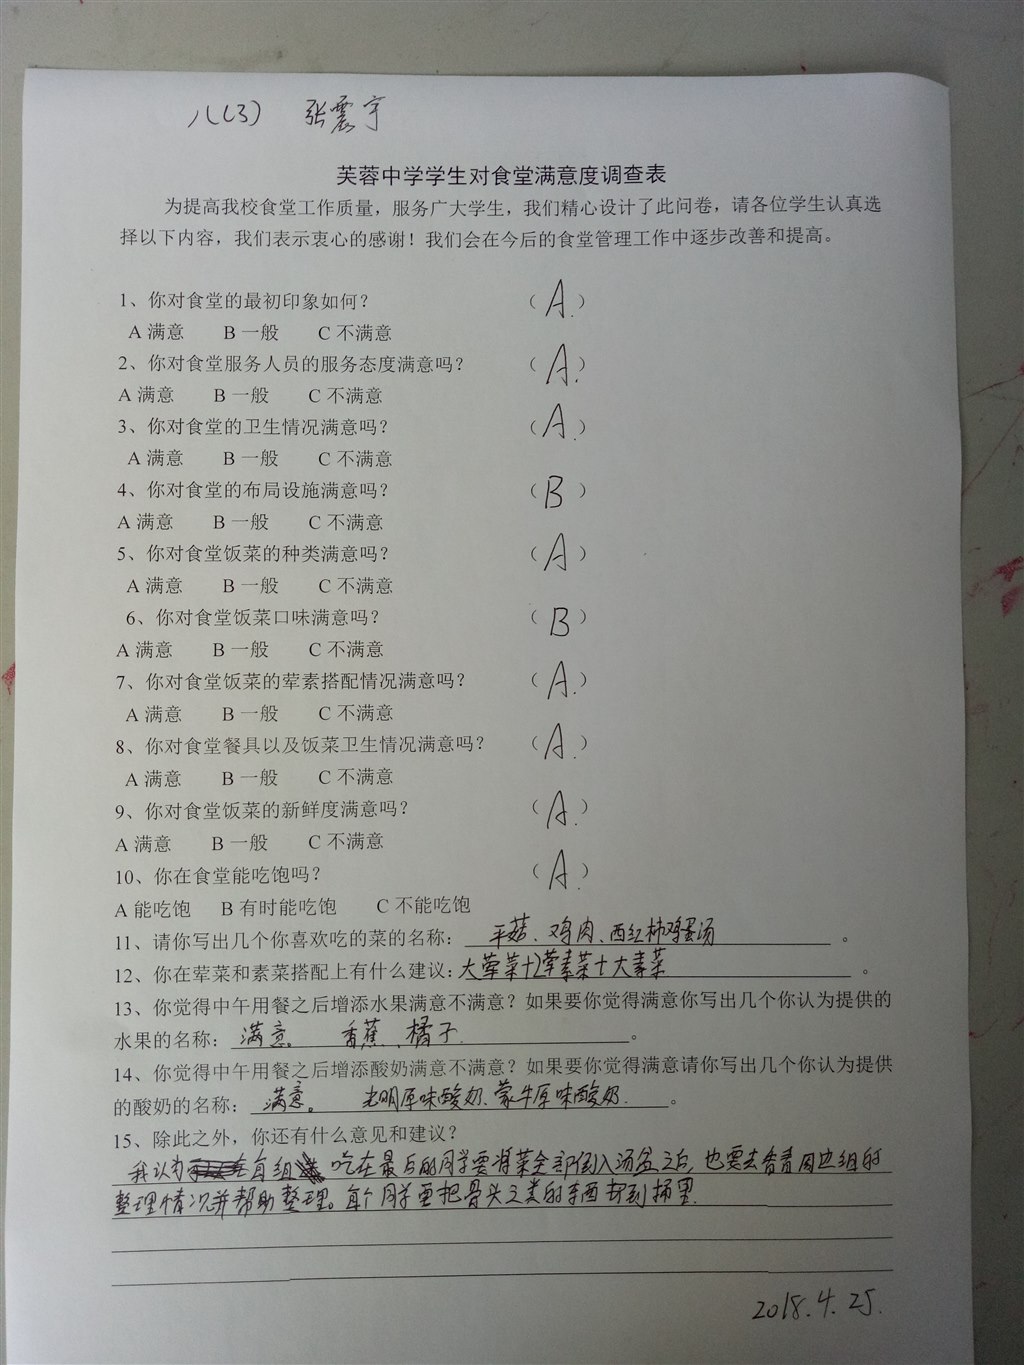 八(3) 张震宇
芙蓉中学学生对食堂满意度调查表
为提高我校食堂工作质量，服务广大学生，我们精心设计了此问卷，请各位学生认真选
择以下内容，我们表示衷心的感谢！我们会在今后的食堂管理工作中逐步改善和提高。
1、你对食堂的最初印象如何？ （A.）
A 满意 B 一般 C 不满意
2、你对食堂服务人员的服务态度满意吗？ （A.）
A 满意 B 一般 C 不满意
3、你对食堂的卫生情况满意吗？ （A.）
A 满意 B 一般 C 不满意
4、你对食堂的布局设施满意吗？ （B）
A 满意 B 一般 C 不满意
5、你对食堂饭菜的种类满意吗？ （A）
A 满意 B 一般 C 不满意
6、你对食堂饭菜口味满意吗？ （B）
A 满意 B 一般 C 不满意
7、你对食堂饭菜的荤素搭配情况满意吗？ （A.）
A 满意 B 一般 C 不满意
8、你对食堂餐具以及饭菜卫生情况满意吗？ （A.）
A 满意 B 一般 C 不满意
9、你对食堂饭菜的新鲜度满意吗？ （A.）
A 满意 B 一般 C 不满意
10、你在食堂能吃饱吗？ （A.）
A 能吃饱 B 有时能吃饱 C 不能吃饱
11、请你写出几个你喜欢吃的菜的名称：平菇、鸡肉、西红柿鸡蛋汤。
12、你在荤菜和素菜搭配上有什么建议：大荤菜+荤素菜+大素菜。
13、你觉得中午用餐之后增添水果满意不满意？如果要你觉得满意你写出几个你认为提供的
水果的名称：满意。 香蕉、橘子.。
14、你觉得中午用餐之后增添酸奶满意不满意？如果要你觉得满意请你写出几个你认为提供
的酸奶的名称：满意。 光明原味酸奶、蒙牛原味酸奶.。
15、除此之外，你还有什么意见和建议？
我认为在每组吃在最后的同学要将菜全部倒入汤盆之后，也要去看看周边组的
整理情况并帮助整理。每个同学要把骨头之类的东西都到桶里.
2018.4.25.